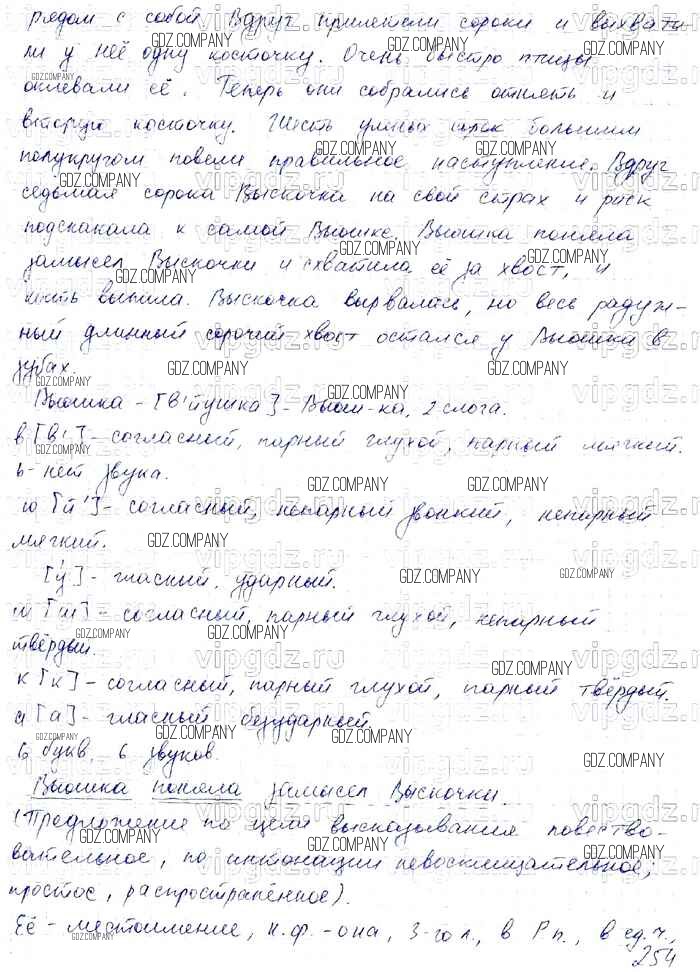 рядом с собой. Вдруг прилетели сороки и выхвати-
ли у неё одну косточку. Очень быстро птицы
оклевали её. Теперь они собрались отнять и
вторую косточку. Шесть умных сорок большим
полукругом повели правильное наступление. Вдруг
седьмая сорока Выскочка на свой страх и риск
подскакала к самой Вьюшке. Вьюшка поняла
замысел Выскочки и схватила её за хвост, и
кость выпила. Выскочка вырвалась, но весь радуж-
ный длинный сорочий хвост остался у Вьюшки в
зубах.
Вьюшка - [в'йушка] - Вьюш-ка, 2 слога.
в [в'] - согласный, парный глухой, парный мягкий.
ь - нет звука.
ю [й'] - согласный, непарный звонкий, непарный
мягкий.
[у́] - гласный, ударный.
ш [ш] - согласный, парный глухой, непарный
твёрдый.
к [к] - согласный, парный глухой, парный твёрдый.
а [а] - гласный безударный.
6 букв, 6 звуков.
Вьюшка поняла замысел Выскочки.
(Предложение по цели высказывания повество-
вательное, по интонации невосклицательное;
простое, распространённое).
Её - местоимение, н.ф. - она, 3-го л., в Р.п., в ед.ч.,
254
GDZ.COMPANY
vipgdz.ru